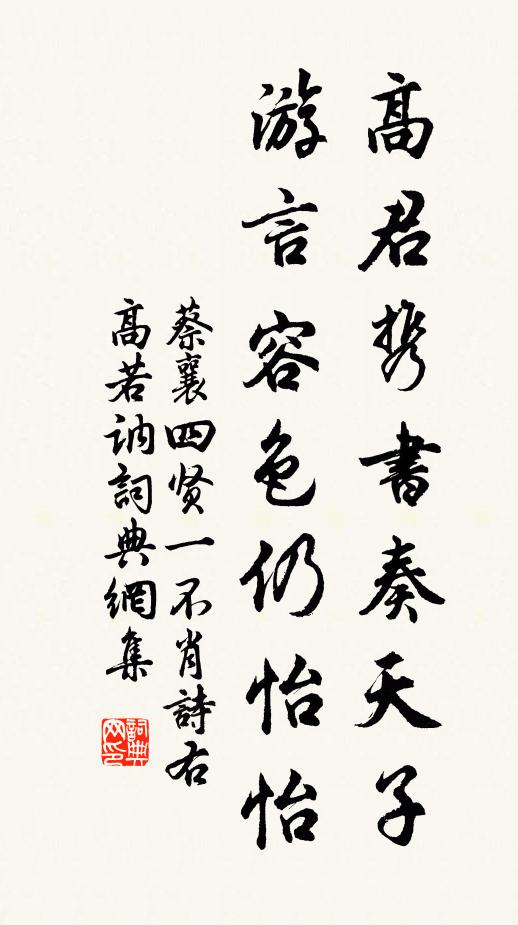 高君携書奏天子
游言容色仍怡怡
蔡襄四贤一不肖詩右
高若訥詞典網集
詞典網印